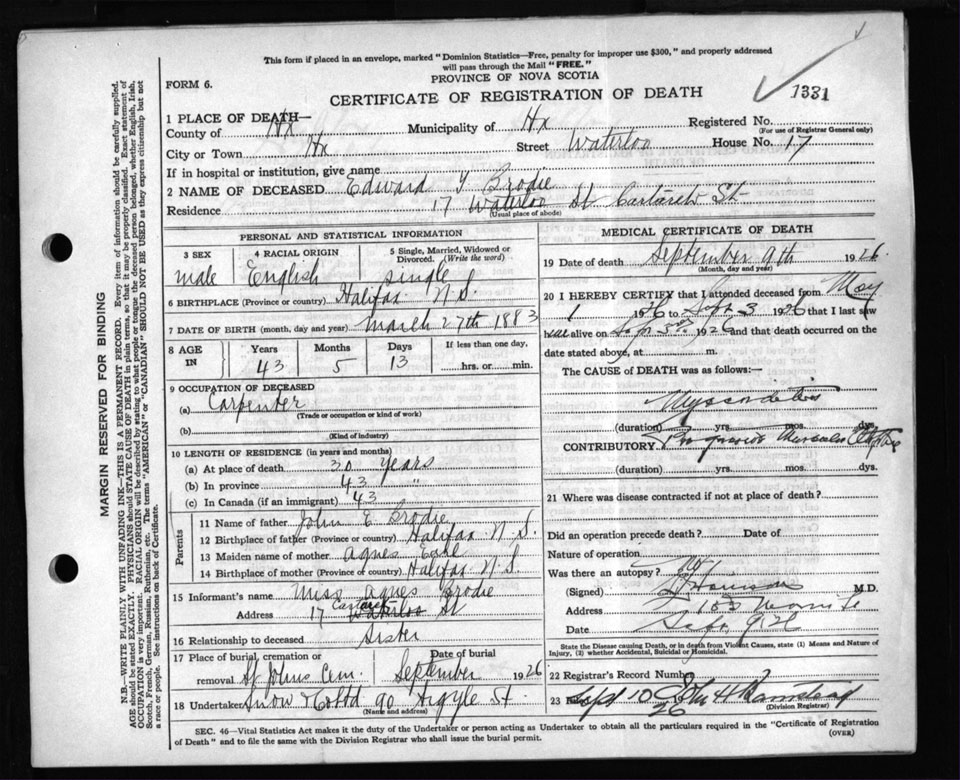 This form if placed in an envelope, marked "Dominion Statistics—Free, penalty for improper use $300," and properly addressed
will pass through the Mail "FREE."
FORM 6.
PROVINCE OF NOVA SCOTIA
CERTIFICATE OF REGISTRATION OF DEATH
1331
1 PLACE OF DEATH—
County of Hx Municipality of Hx Registered No.
(For use of Registrar General only)
City or Town Hx Street Waterloo House No. 17
If in hospital or institution, give name
2 NAME OF DECEASED Edward Y Brodie
Residence 17 Waterloo St St
(Usual place of abode)
PERSONAL AND STATISTICAL INFORMATION
3 SEX
male
4 RACIAL ORIGIN
English
5 Single, Married, Widowed or
Divorced. (Write the word)
single
6 BIRTHPLACE (Province or country) Halifax N.S.
7 DATE OF BIRTH (month, day and year) march 27th 1883
8 AGE IN
Years Months Days If less than one day.
43 5 13 hrs. or min.
9 OCCUPATION OF DECEASED
(a) Carpenter
(Trade or occupation or kind of work)
(b)
(Kind of industry)
10 LENGTH OF RESIDENCE (in years and months)
(a) At place of death 30 years
(b) In province 43 "
(c) In Canada (if an immigrant) 43
Parents
11 Name of father John E Brodie
12 Birthplace of father (Province or country) Halifax N.S.
13 Maiden name of mother agnes
14 Birthplace of mother (Province or country) Halifax N.S.
15 Informant's name Miss agnes Brodie
Address 17 Waterloo St
16 Relationship to deceased Sister
17 Place of burial, cremation or Date of burial
removal St Johns Cem. September 1926
18 Undertaker Snow & Co Ltd 90 Argyle St.
(Name and address)
MEDICAL CERTIFICATE OF DEATH
19 Date of death September 9th 1926
(Month, day and year)
20 I HEREBY CERTIFY that I attended deceased from May
1 1926 to Sept 3 1926 that I last saw
h alive on Sep 3rd 1926 and that death occurred on
date stated above, at m.
The CAUSE of DEATH was as follows:—
(duration) yrs. mos. dys.
CONTRIBUTORY
(duration) yrs. mos. dys.
21 Where was disease contracted if not at place of death?
Did an operation precede death? Date of
Nature of operation
Was there an autopsy? No
(Signed) M.D.
Address
Date
State the Disease causing Death, or in death from Violent Causes, state (1) Means and Nature of
Injury, (2) whether Accidental, Suicidal or Homicidal.
22 Registrar's Record Number
23 Filed Sept 10 26
(Division Registrar)
SEC. 46—Vital Statistics Act makes it the duty of the Undertaker or person acting as Undertaker to obtain all the particulars required in the "Certificate of Registration
of Death" and to file the same with the Division Registrar who shall issue the burial permit.
(OVER)
MARGIN RESERVED FOR BINDING
N.B.—WRITE PLAINLY WITH UNFADING INK—THIS IS A PERMANENT RECORD. Every item of information should be carefully supplied.
AGE should be stated EXACTLY. PHYSICIANS should STATE CAUSE OF DEATH in plain terms, so that it may be properly classified. Exact statement of
OCCUPATION is very important. RACIAL ORIGIN will be described by stating to what people or tongue the deceased person belonged, whether English, Irish,
Scotch, French, German, Russian, Ruthenian, etc. The terms "AMERICAN" or "CANADIAN" SHOULD NOT BE USED as they express citizenship but not
a race or people. See instructions on back of Certificate.